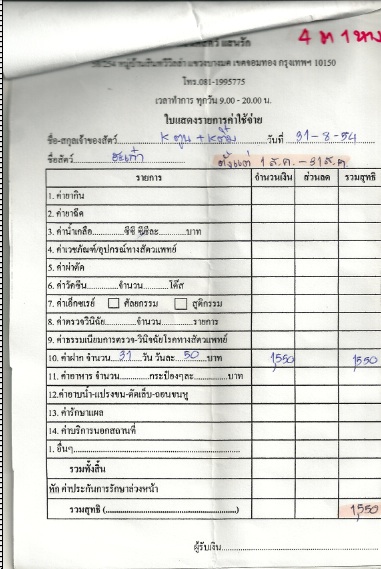 4 ต 1 หาง
แขวงบางมด เขตจอมทอง กรุงเทพฯ 10150
โทร.081-1995775
เวลาทำการ ทุกวัน 9.00 - 20.00 น.
ใบแสดงรายการค่าใช้จ่าย
ชื่อ-สกุลเจ้าของสัตว์ K ตูน + K ตั้ม วันที่ 31-8-54
ชื่อสัตว์ ตั้งแต่ 1 ส.ค. - 31 ส.ค.
รายการ จำนวนเงิน ส่วนลด รวมสุทธิ
1. ค่ายากิน
2. ค่ายาฉีด
3. ค่าน้ำเกลือ............ซีซี ซีซีละ............บาท
4. ค่าเวชภัณฑ์/อุปกรณ์ทางสัตวแพทย์
5. ค่าผ่าตัด
6. ค่าวัคซีน............จำนวน............โด๊ส
7. ค่าเอ็กซเรย์ ศัลยกรรม สูติกรรม
8. ค่าตรวจวินิฉัย............จำนวน............รายการ
9. ค่าธรรมเนียมการตรวจ-วินิจฉัยโรคทางสัตวแพทย์
10. ค่าฝาก จำนวน 31 วัน วันละ 50 บาท 1,550 1,550
11. ค่าอาหาร จำนวน............กระป๋องๆละ............บาท
12.ค่าอาบน้ำ-แปรงขน-ตัดเล็บ-ถอนขนหู
13. ค่ารักษาแผล
14. ค่าบริการนอกสถานที่
1. อื่นๆ............
รวมทั้งสิ้น
หัก ค่าประกันการรักษาล่วงหน้า
รวมสุทธิ (............) 1,550
ผู้รับเงิน............